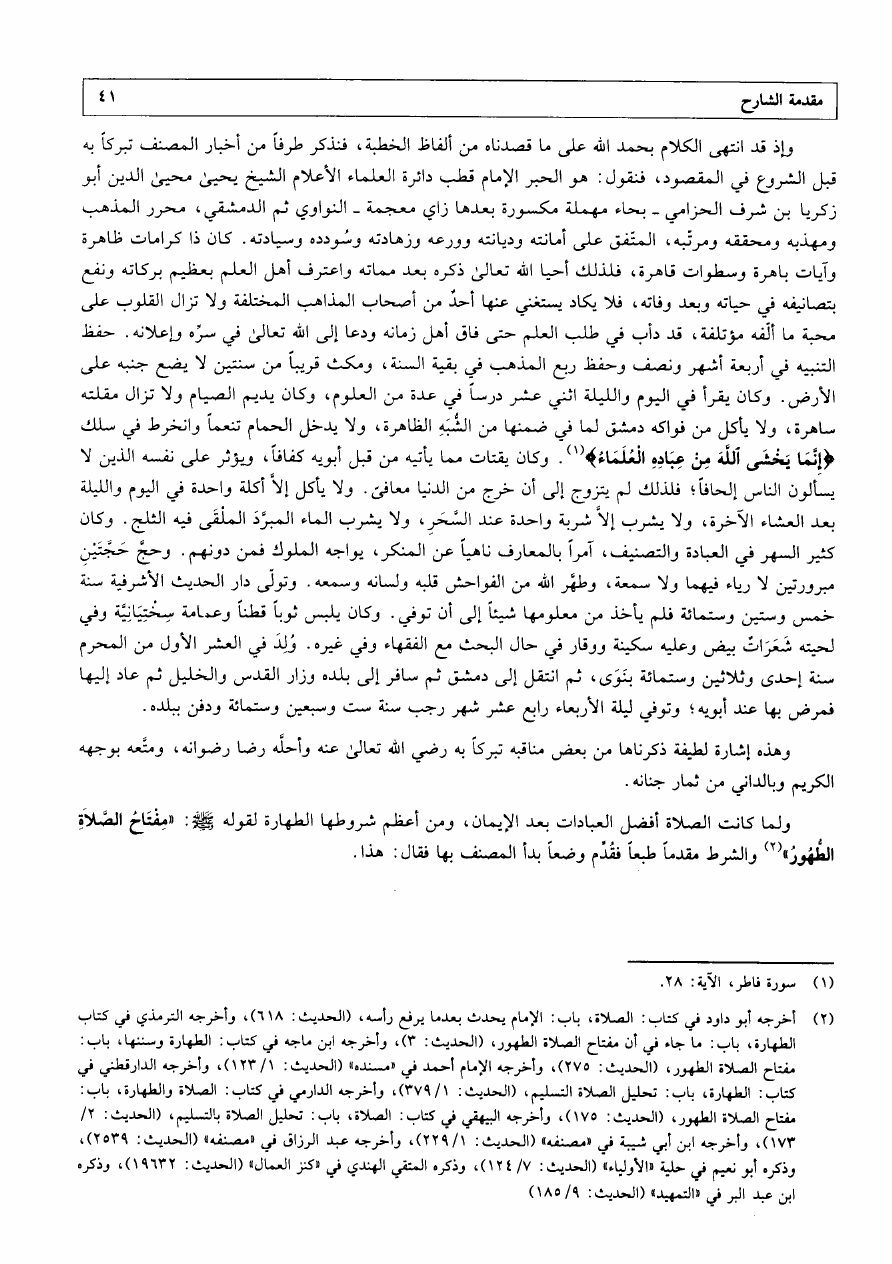 مقدمة الشارح
٤١
وإذ قد انتهى الكلام بحمد الله على ما قصدناه من ألفاظ الخطبة، فنذكر طرفاً من أخبار المصنف تبركاً به
قبل الشروع في المقصود، فنقول: هو الحبر الإمام قطب دائرة العلماء الأعلام الشيخ يحيىٰ محيىٰ الدين أبو
زكريا بن شرف الحزامي ـ بحاء مهملة مكسورة بعدها زاي معجمة ـ النواوي ثم الدمشقي، محرر المذهب
ومهذبه ومحققه ومرتّبه، المتّفق على أمانته وديانته وورعه وزهادته وسُودده وسيادته. كان ذا كرامات ظاهرة
وآيات باهرة وسطوات قاهرة، فلذلك أحيا الله تعالىٰ ذكره بعد مماته واعترف أهل العلم بعظيم بركاته ونفع
بتصانيفه في حياته وبعد وفاته، فلا يكاد يستغني عنها أحدٌ من أصحاب المذاهب المختلفة ولا تزال القلوب على
محبة ما ألّفه مؤتلفة، قد دأب في طلب العلم حتى فاق أهل زمانه ودعا إلى الله تعالىٰ في سرّه وإعلانه. حفظ
التنبيه في أربعة أشهر ونصف وحفظ ربع المذهب في بقية السنة، ومكث قريباً من سنتين لا يضع جنبه على
الأرض. وكان يقرأ في اليوم والليلة اثني عشر درساً في عدة من العلوم، وكان يديم الصيام ولا تزال مقلته
ساهرة، ولا يأكل من فواكه دمشق لما في ضمنها من الشُّبَهِ الظاهرة، ولا يدخل الحمام تنعماً وانخرط في سلك
﴿إِنَّمَا يَخْشَى ٱللَّهَ مِنْ عِبَادِهِ الْعُلَمَاءُ﴾(١). وكان يقتات مما يأتيه من قبل أبويه كفافاً، ويؤثر على نفسه الذين لا
يسألون الناس إلحافاً؛ فلذلك لم يتزوج إلى أن خرج من الدنيا معافىً. ولا يأكل إلاّ أكلة واحدة في اليوم والليلة
بعد العشاء الآخرة، ولا يشرب إلاّ شربة واحدة عند السَّحَرِ، ولا يشرب الماء المبرَّدَ الملْقَى فيه الثلج. وكان
كثير السهر في العبادة والتصنيف، آمراً بالمعارف ناهياً عن المنكر، يواجه الملوك فمن دونهم. وحجَّ حَجَّتَيْنِ
مبرورتين لا رياء فيهما ولا سمعة، وطهَّر الله من الفواحش قلبه ولسانه وسمعه. وتولّى دار الحديث الأشرفية سنة
خمس وستين وستمائة فلم يأخذ من معلومها شيئاً إلى أن توفي. وكان يلبس ثوباً قطناً وعمامة سِخْتِيَانِيَّة وفي
لحيته شَعَرَاتٌ بيض وعليه سكينة ووقار في حال البحث مع الفقهاء وفي غيره. وُلِدَ في العشر الأول من المحرم
سنة إحدى وثلاثين وستمائة بنَوَى، ثم انتقل إلى دمشق ثم سافر إلى بلده وزار القدس والخليل ثم عاد إليها
فمرض بها عند أبويه؛ وتوفي ليلة الأربعاء رابع عشر شهر رجب سنة ست وسبعين وستمائة ودفن ببلده.
وهذه إشارة لطيفة ذكرناها من بعض مناقبه تبركاً به رضي الله تعالىٰ عنه وأحلَّه رضا رضوانه، ومتَّعه بوجهه
الكريم وبالداني من ثمار جنانه.
ولما كانت الصلاة أفضل العبادات بعد الإيمان، ومن أعظم شروطها الطهارة لقوله ﷺ: «مِفْتَاحُ الصَّلاَةِ
الطُّهُورُ»(٢) والشرط مقدماً طبعاً فقُدِّم وضعاً بدأ المصنف بها فقال: هذا.
(١) سورة فاطر، الآية: ٢٨.
(٢) أخرجه أبو داود في كتاب: الصلاة، باب: الإمام يحدث بعدما يرفع رأسه، (الحديث: ٦١٨)، وأخرجه الترمذي في كتاب
الطهارة، باب: ما جاء في أن مفتاح الصلاة الطهور، (الحديث: ٣)، وأخرجه ابن ماجه في كتاب: الطهارة وسننها، باب:
مفتاح الصلاة الطهور، (الحديث: ٢٧٥)، وأخرجه الإمام أحمد في «مسنده» (الحديث: ١/ ١٢٣)، وأخرجه الدارقطني في
كتاب: الطهارة، باب: تحليل الصلاة التسليم، (الحديث: ١/ ٣٧٩)، وأخرجه الدارمي في كتاب: الصلاة والطهارة، باب:
مفتاح الصلاة الطهور، (الحديث: ١٧٥)، وأخرجه البيهقي في كتاب: الصلاة، باب: تحليل الصلاة بالتسليم، (الحديث: ٢/
١٧٣)، وأخرجه ابن أبي شيبة في «مصنفه» (الحديث: ١/ ٢٢٩)، وأخرجه عبد الرزاق في «مصنفه» (الحديث: ٢٥٣٩)،
وذكره أبو نعيم في حلية «الأولياء» (الحديث: ٧/ ١٢٤)، وذكره المتقي الهندي في «كنز العمال» (الحديث: ١٩٦٣٢)، وذكره
ابن عبد البر في «التمهيد» (الحديث: ٩/ ١٨٥)